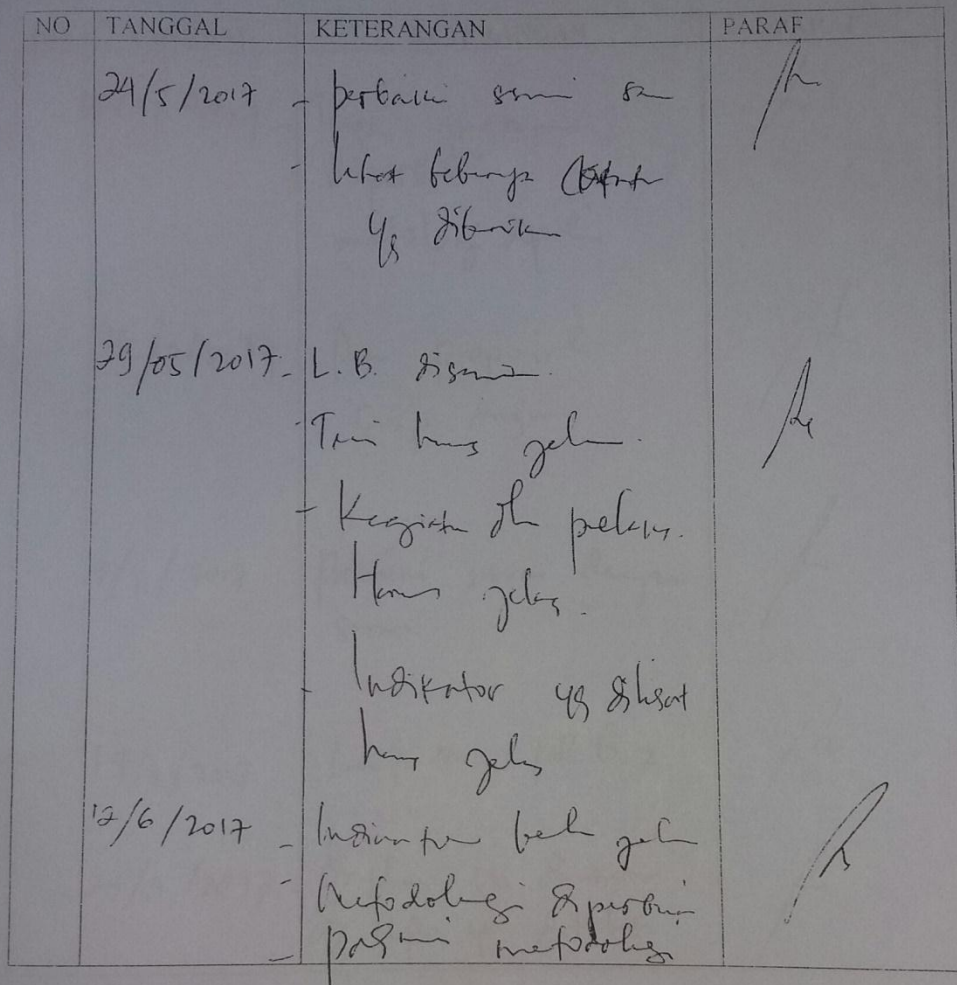 NO TANGGAL KETERANGAN PARAF
24/5/2017 - perbaiki sesuai
- lihat beberapa catatan
yg diberikan
29/05/2017 - L.B.
- Teori harus jelas.
- Kegiatan dlm
Harus jelas.
- Indikator yg dilihat
harus jelas
12/6/2017 - Indikator belum jelas
- Metodologi diperbaiki
- metodologi